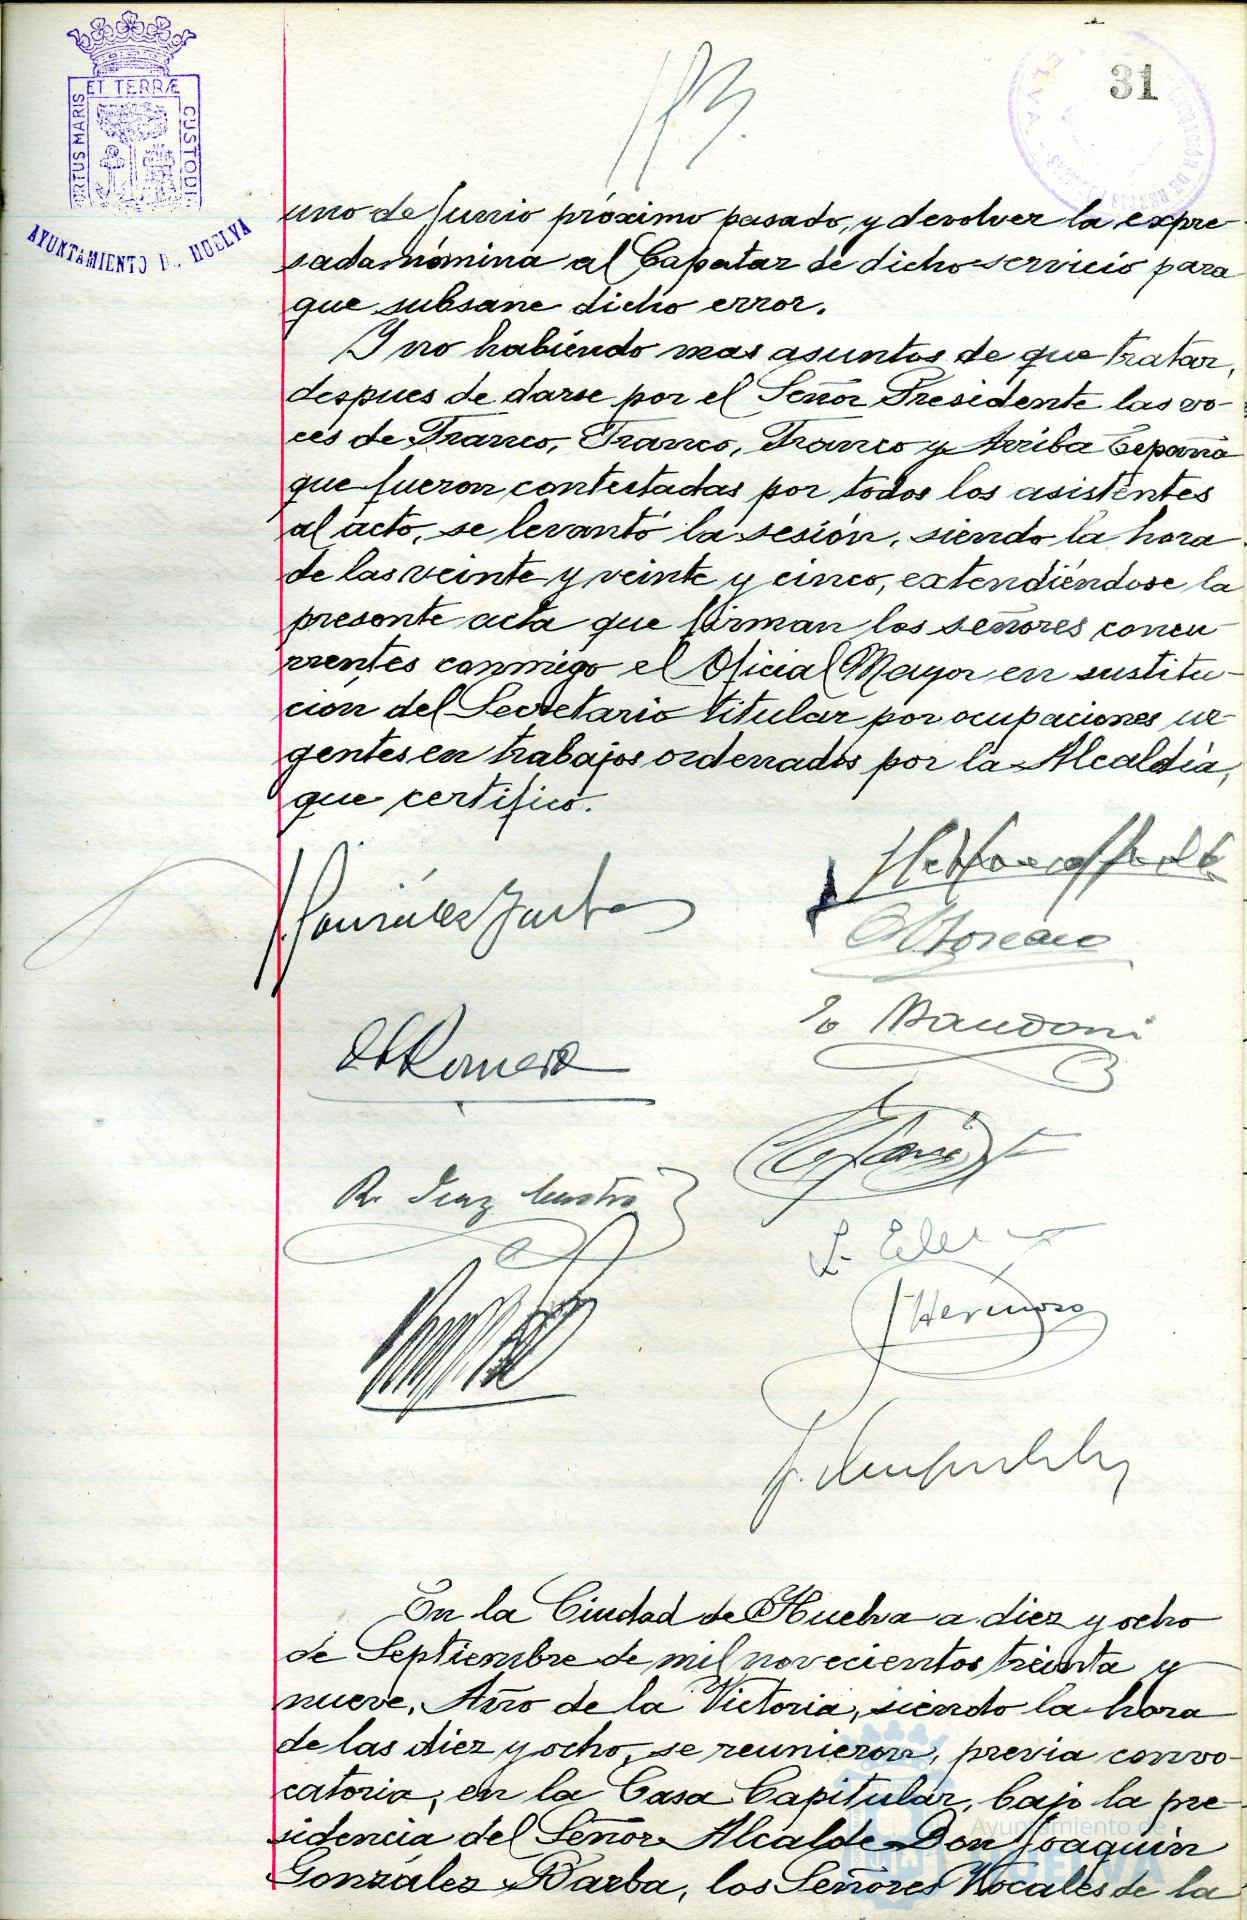 ET TERRÆ
PORTUS MARIS
CUSTODIA
AYUNTAMIENTO DE HUELVA
31
uno de Junio próximo pasado, y devolver la expre-
sada nómina al Capataz de dicho servicio para
que subsane dicho error.
Y no habiendo mas asuntos de que tratar,
despues de darse por el Señor Presidente las vo-
ces de Franco, Franco, Franco y Arriba España
que fueron contestadas por todos los asistentes
al acto, se levantó la sesión, siendo la hora
de las veinte y veinte y cinco, extendiéndose la
presente acta que firman los señores concu-
rrentes conmigo el Oficial Mayor en sustitu-
ción del Secretario titular por ocupaciones ur-
gentes en trabajos ordenados por la Alcaldía,
que certifico.
J. González Barba
A Moreno
Mandoni
Romero
R. Diaz Castro
J Hermoso
En la Ciudad de Huelva a diez y ocho
de Septiembre de mil novecientos treinta y
nueve, Año de la Victoria, siendo la hora
de las diez y ocho, se reunieron, previa convo-
catoria, en la Casa Capitular, bajo la pre-
sidencia del Señor Alcalde Don Joaquín
González Barba, los Señores Vocales de la
Ayuntamiento de
HUELVA